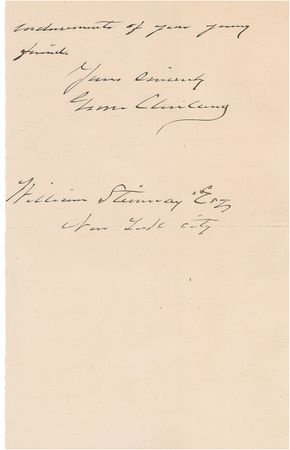 endorsements of your young
friend.
Yours sincerely
Grover Cleveland
William Steinway Esq
New York City